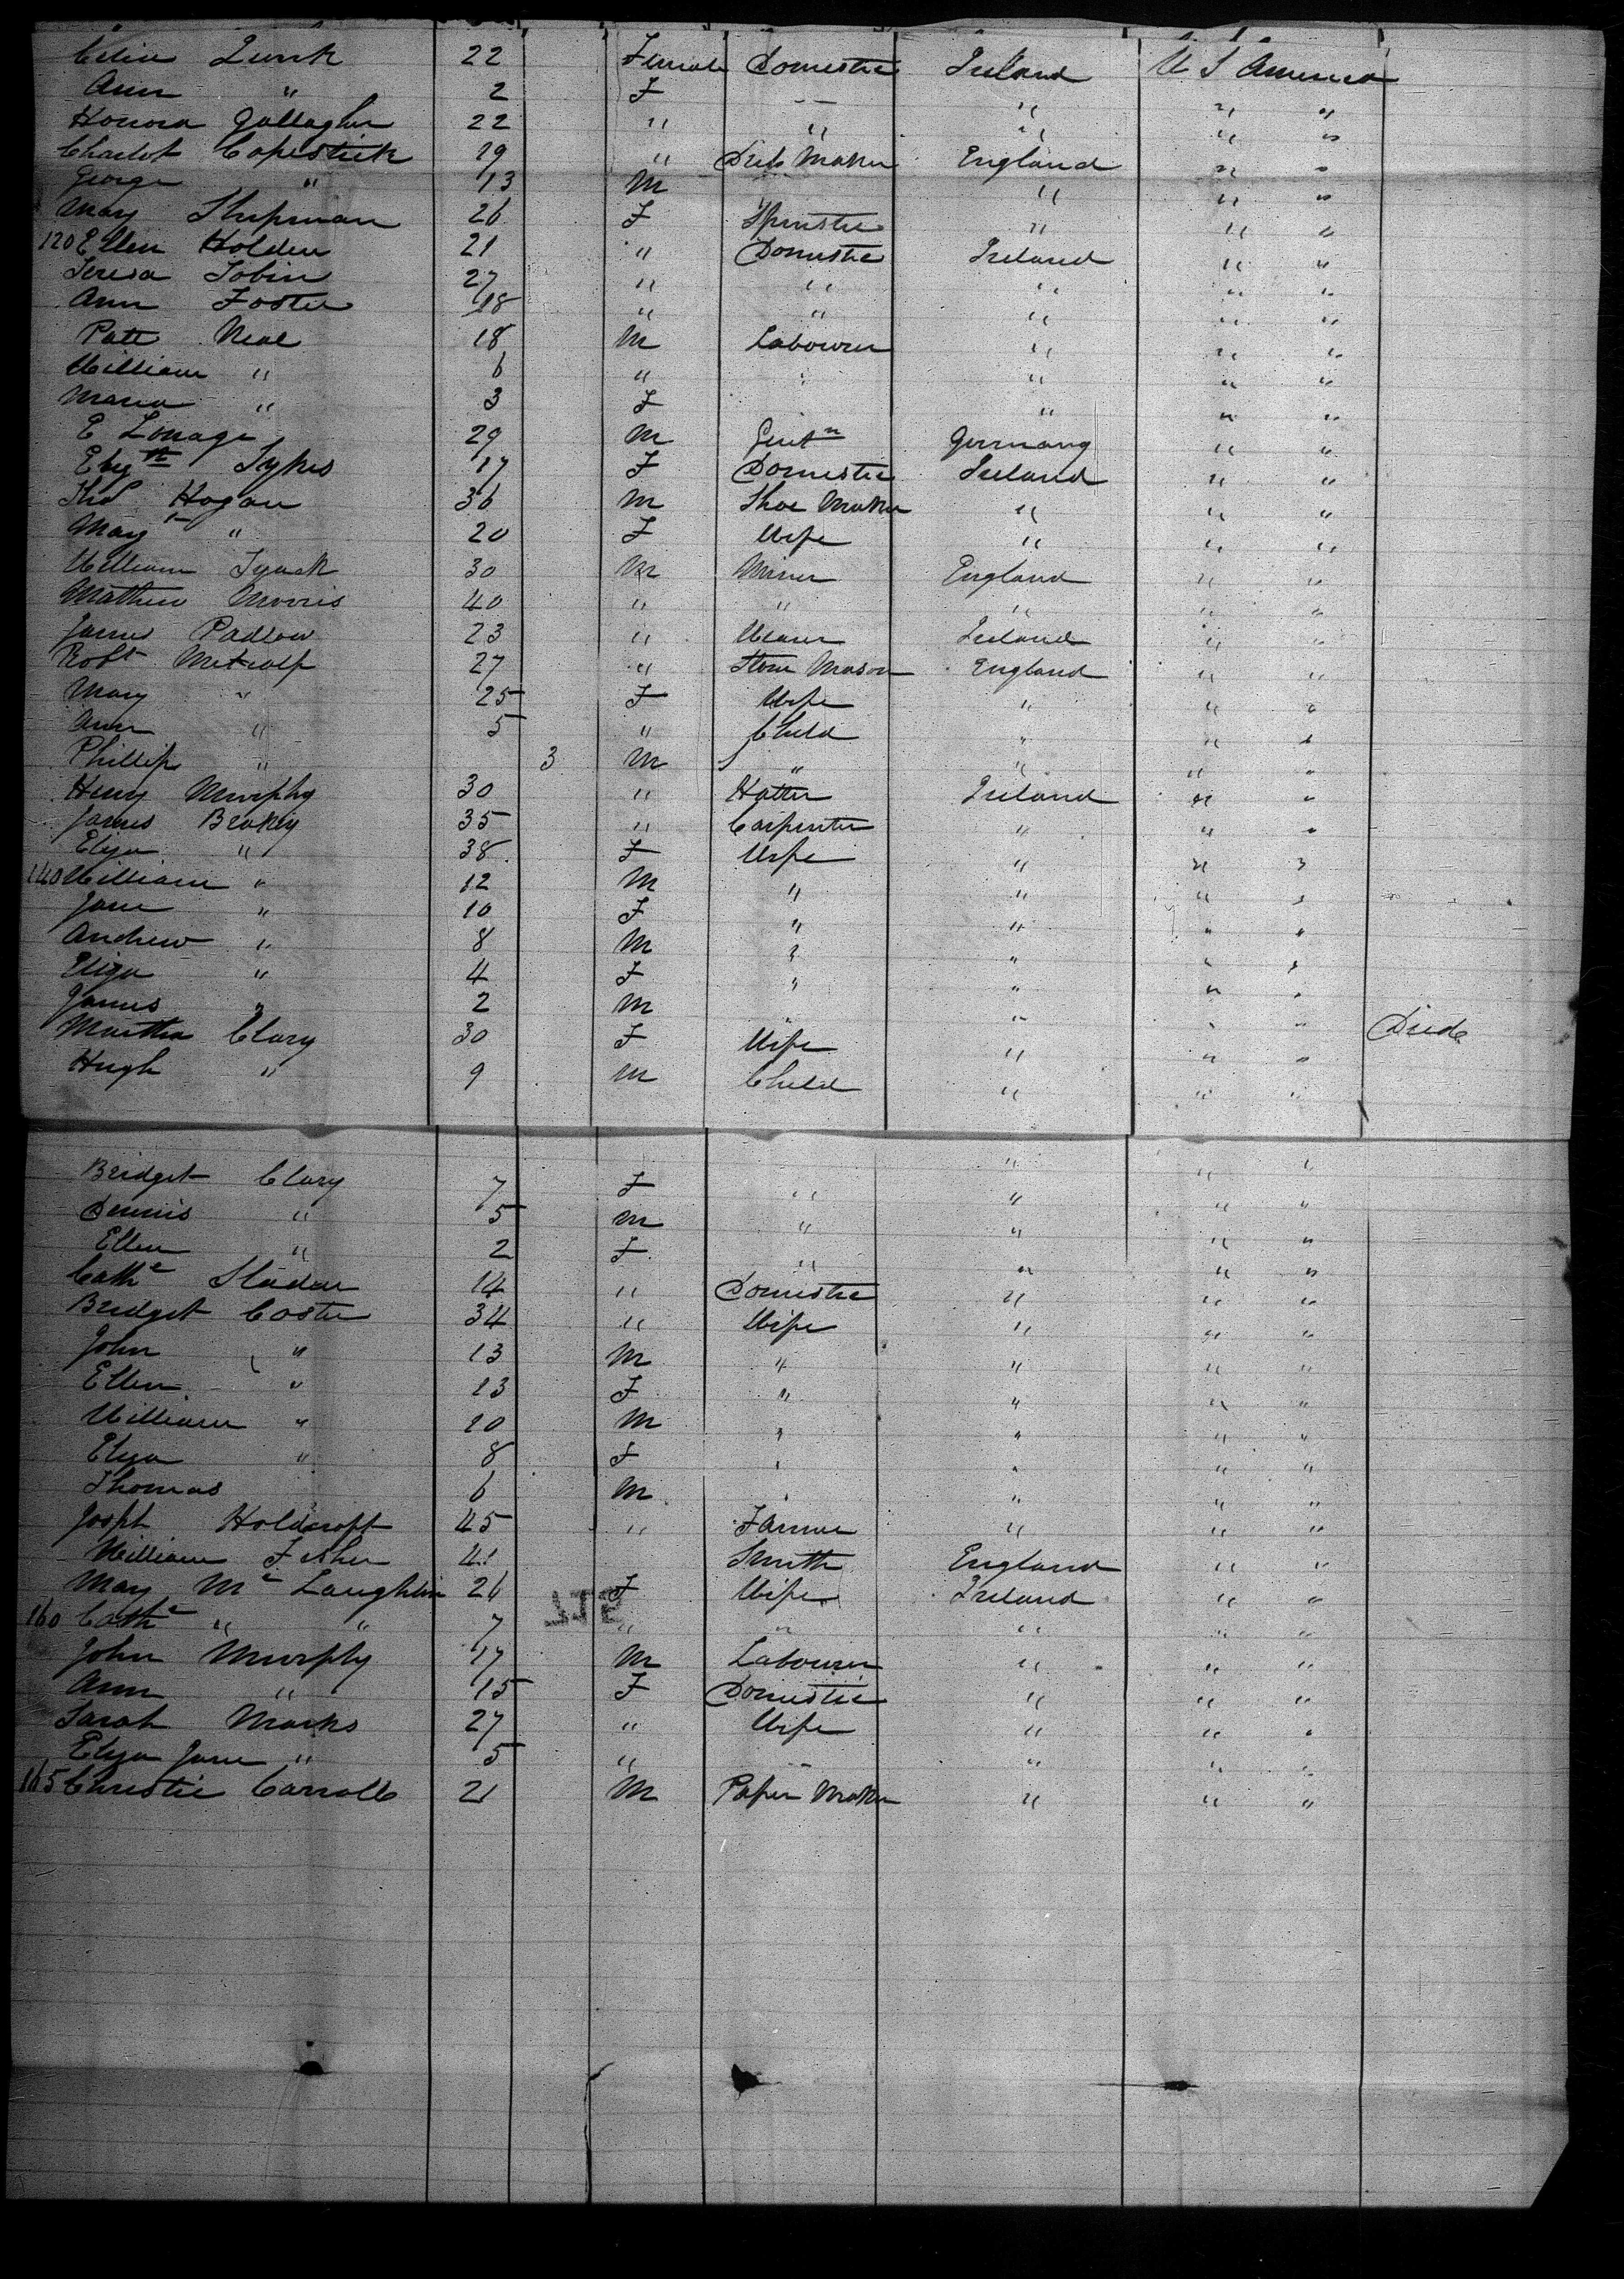 Celia Quirk 22 Female Domestic Ireland U S America
Ann " 2 F — " " "
Honora Gallagher 22 " " " " "
Charlot Copestick 19 " Dress Maker England " "
George " 13 M " " "
Mary Shipman 26 F Spinster " " "
120 Ellen Holden 21 " Domestic Ireland " "
Teresa Tobin 27 " " " " "
Ann Foster 18 " " " " "
Patt Neal 18 M Labourer " " "
William " 6 " " " " "
Maria " 3 F " " "
E Lonage 29 M Gentn Germany " "
Elizth Sykes 17 F Domestic Ireland " "
Thos Hogan 36 M Shoe Maker " " "
Mary " 20 F Wife " " "
William Tyack 30 M Miner England " "
Mathew Morris 40 " " " " "
James Padlow 23 " Weaver Ireland " "
Robt Metcalf 27 " Stone Mason England " "
Mary " 25 F Wife " " "
Ann " 5 " Child " " "
Phillip " 3 M " " " "
Henry Murphy 30 " Hatter Ireland " "
James Brakey 35 " Carpenter " " "
Eliza " 38 F Wife " " "
140 William " 12 M " " " "
Jane " 10 F " " " "
Andrew " 8 M " " " "
Eliza " 4 F " " " "
James " 2 M " " " " Died
Martha Clary 30 F Wife " " "
Hugh " 9 M Child " " "
" " "
Bridget Clary 7 F " " " "
Dennis " 5 M " " " "
Ellen " 2 F " " " "
Cathe Sladen 14 " Domestic " " "
Bridget Coster 34 " Wife " " "
John " 13 M " " " "
Ellen " 13 F " " " "
William " 10 M " " " "
Eliza " 8 F " " " "
Thomas 6 M " " " "
Josph Holdcroft 45 " Farmer " " "
William Fisher 41 Smith England " "
Mary Mc Laughlin 26 F Wife Ireland " "
160 Cathe " " 7 " " " " "
John Murphy 17 M Labourer " " "
Ann " 15 F Domestic " " "
Sarah Marks 27 " Wife " " "
Eliza Jane " 5 " " " " "
165 Christie Carroll 21 M Paper Maker " " "